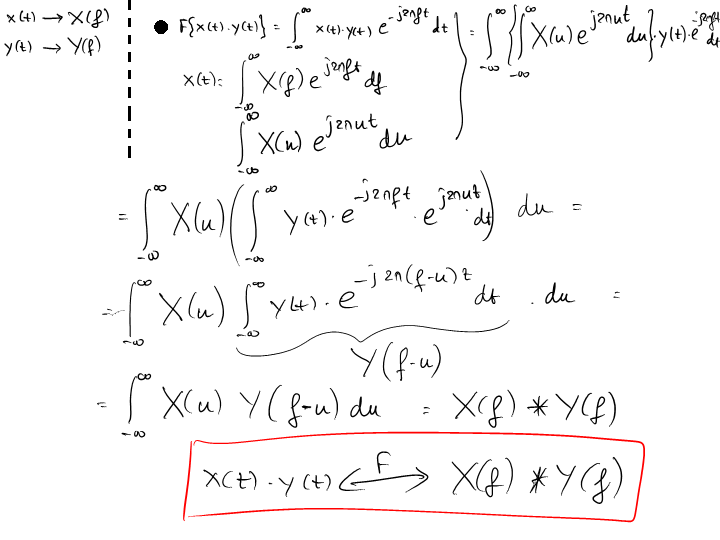 x(t) → X(f)
y(t) → Y(f)
● F{x(t)·y(t)} = ∫_{-∞}^{∞} x(t)·y(t) e^{-j2πft} dt = ∫_{-∞}^{∞} {∫_{-∞}^{∞} X(u) e^{j2πut} du}·y(t)·e^{-j2πft} dt
x(t): ∫_{-∞}^{∞} X(f) e^{j2πft} df
∫_{-∞}^{∞} X(u) e^{j2πut} du
= ∫_{-∞}^{∞} X(u) (∫_{-∞}^{∞} y(t)·e^{-j2πft}·e^{j2πut}·dt) du =
= ∫_{-∞}^{∞} X(u) ∫_{-∞}^{∞} y(t)·e^{-j2π(f-u)t} dt . du =
Y(f-u)
= ∫_{-∞}^{∞} X(u) Y(f-u) du = X(f) * Y(f)
x(t)·y(t) ⟷^{F} X(f) * Y(f)